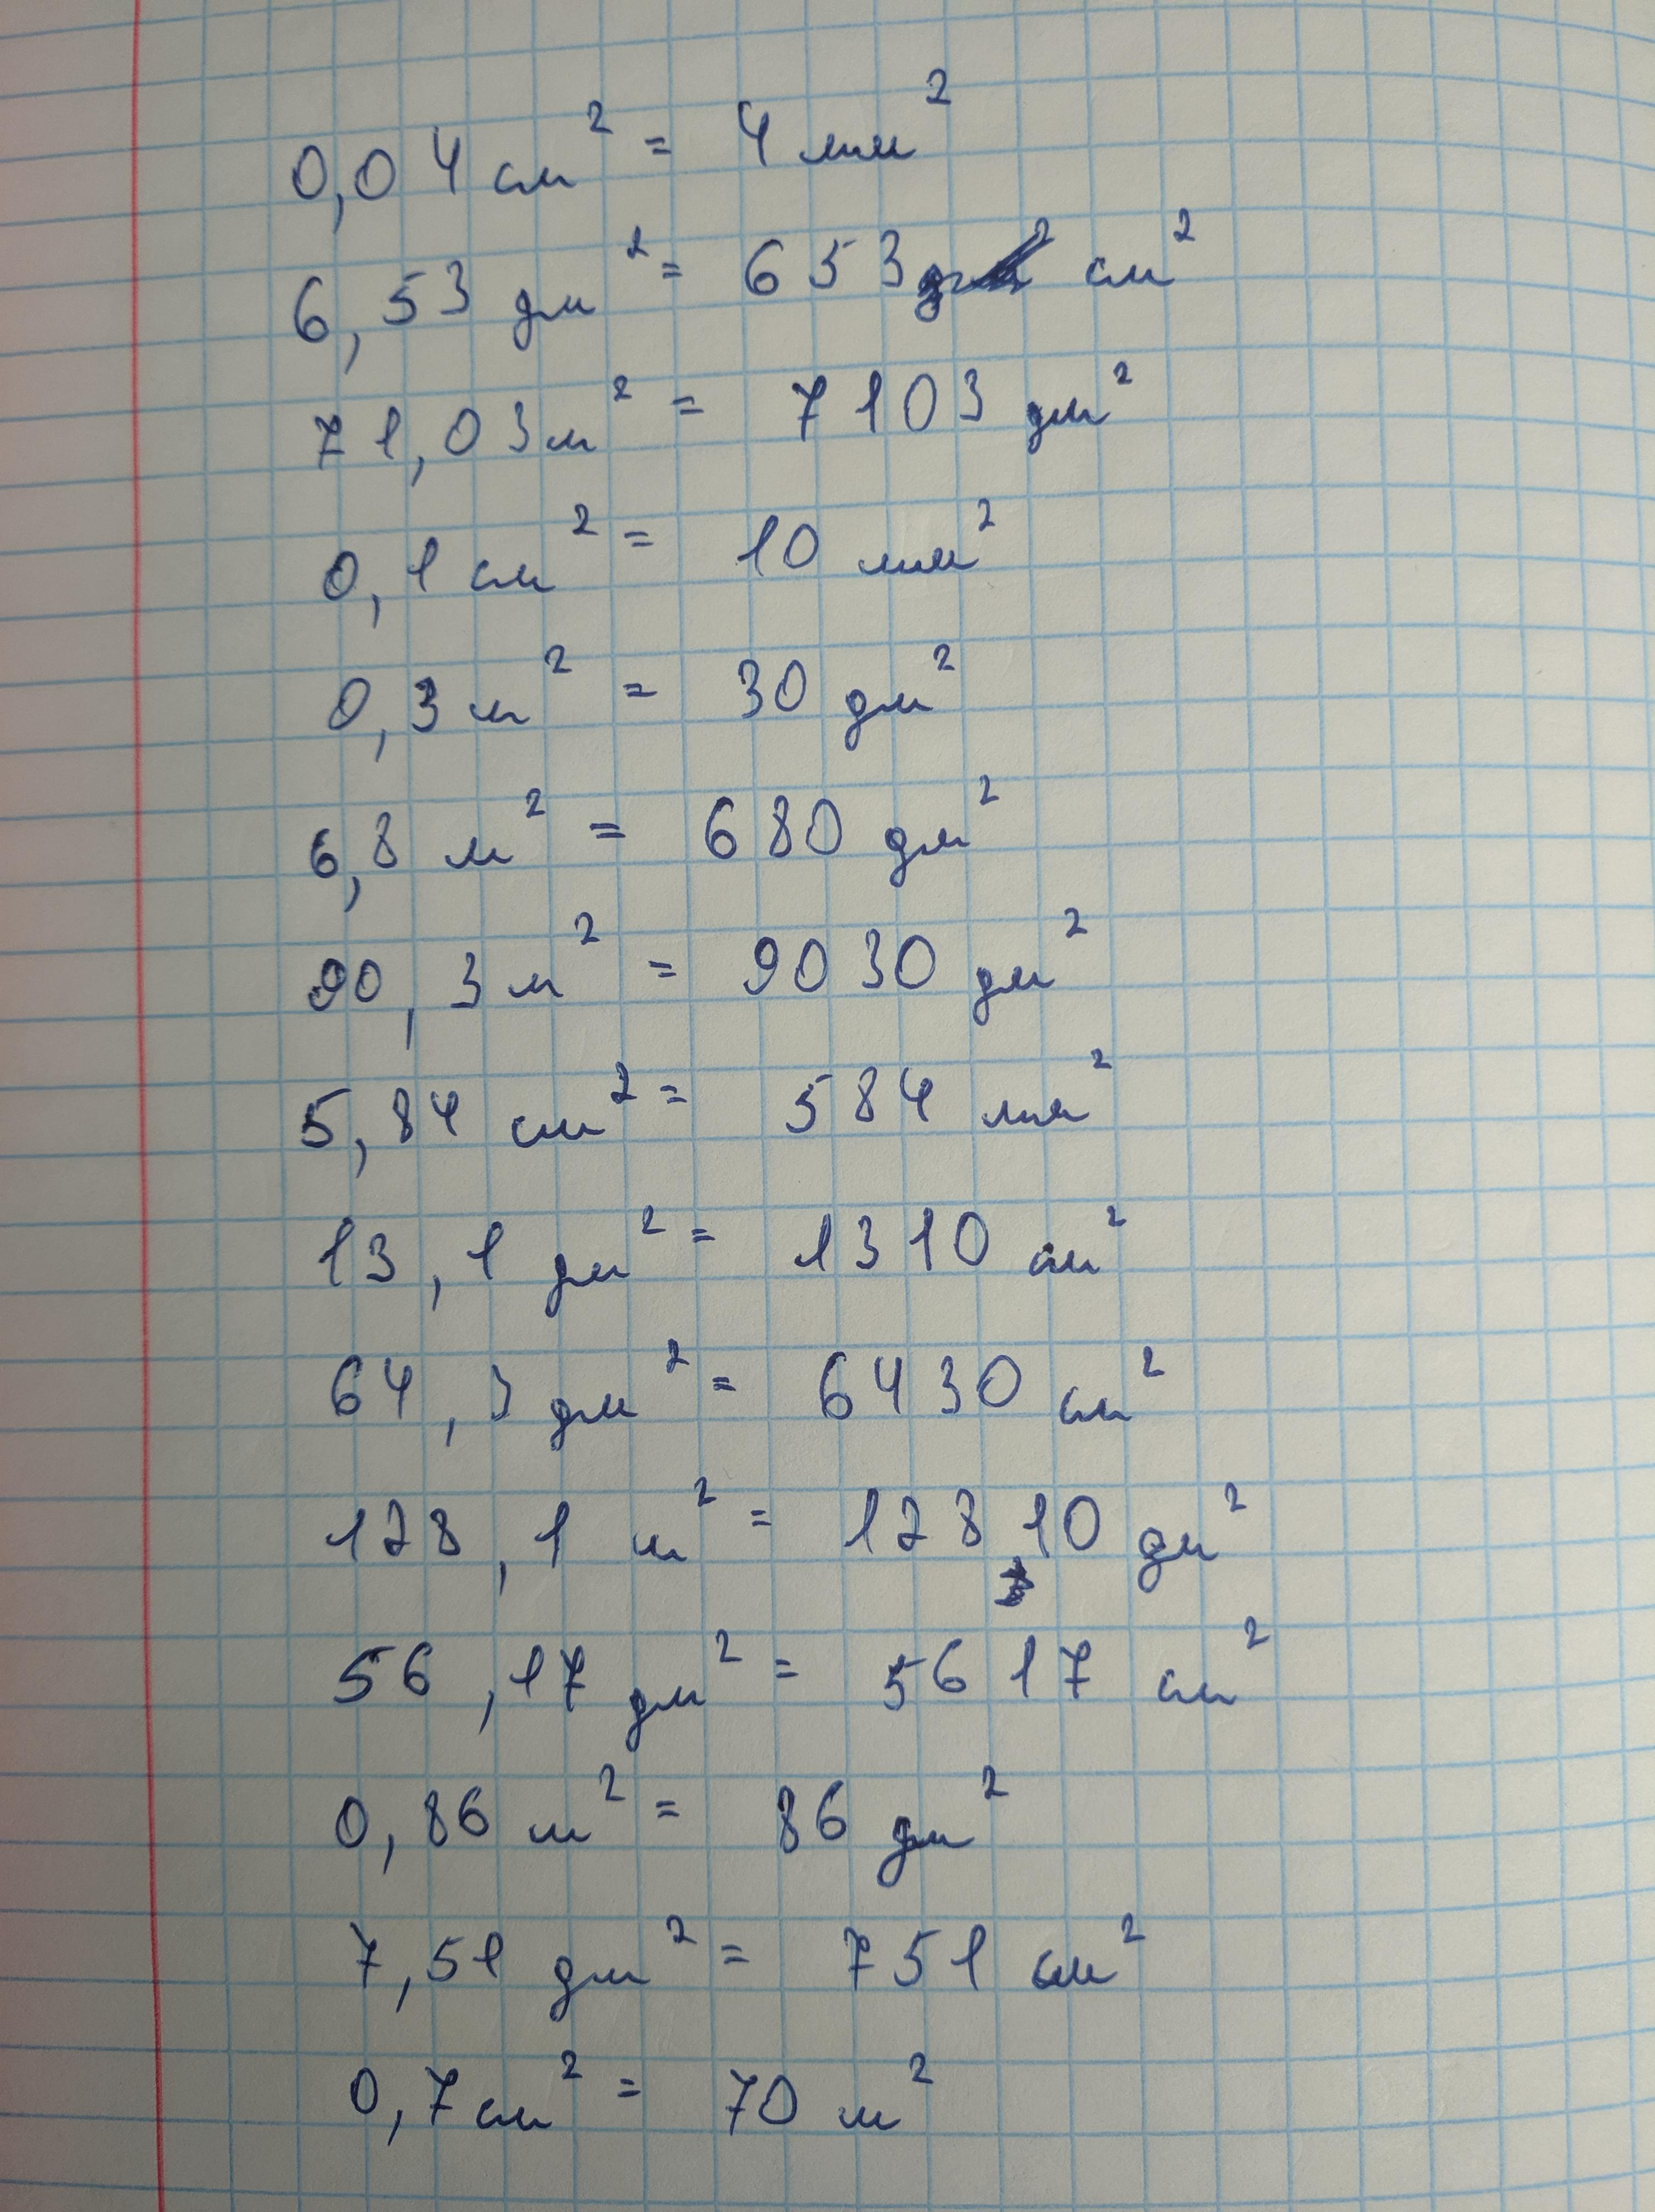 0,04 см² = 4 мм²
6,53 дм² = 653 см²
71,03 м² = 7103 дм²
0,1 см² = 10 мм²
0,3 м² = 30 дм²
6,8 м² = 680 дм²
90,3 м² = 9030 дм²
5,84 см² = 584 мм²
13,1 дм² = 1310 см²
64,3 дм² = 6430 см²
128,1 м² = 12810 дм²
56,17 дм² = 5617 см²
0,86 м² = 86 дм²
7,51 дм² = 751 см²
0,7 см² = 70 м²